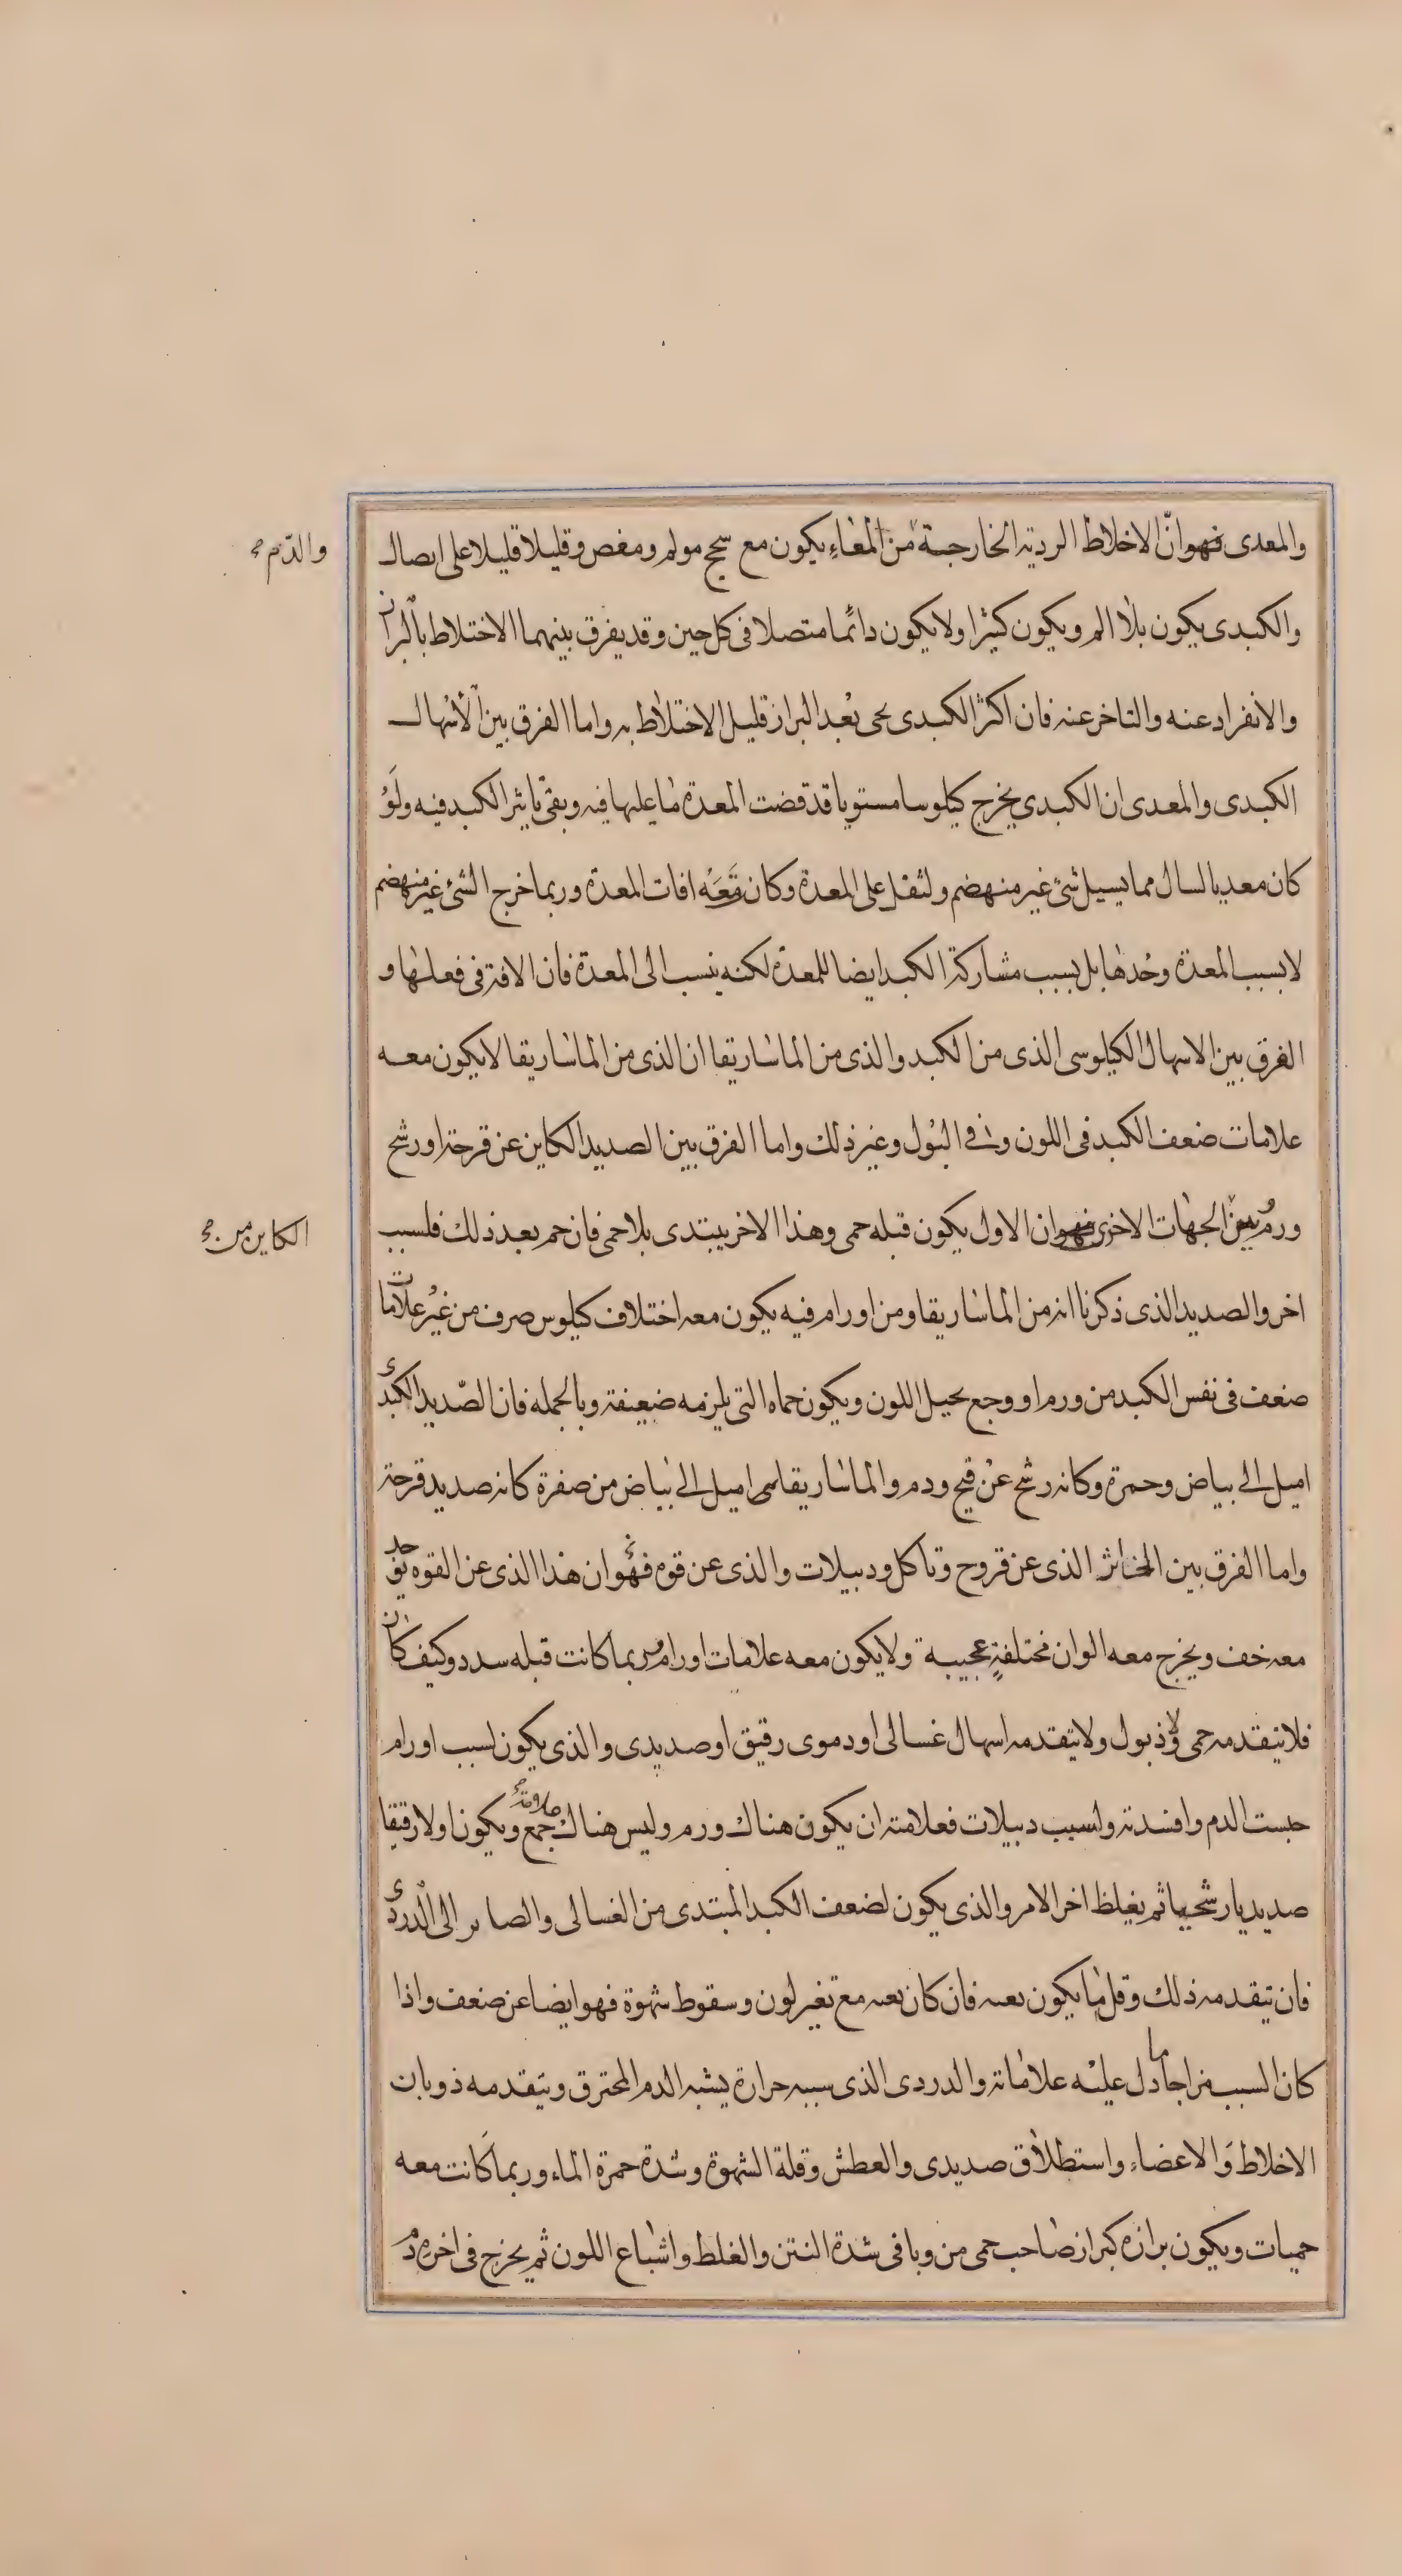 والمعدى فهو انّ الاخلاط الردية الخارجة من المعاء يكون مع سحج مولم ومغص وقليلا قليلا على ايصال
والدّم صح
والكبدى يكون بلا الم ويكون كثيرا ولا يكون دائما متصلا فى كل حين وقد يفرق بينهما الاختلاط بالبراز
والانفراد عنه والتاخر عنه فان اكثر الكبدى يحى بعد البراز قليل الاختلاط به واما الفرق بين الاسهال
الكبدى والمعدى ان الكبدى يخرج كيلوسا مستويا قد قضت المعدة ما عليها فيه وبقى تاثير الكبد فيه ولو
كان معديا لسال مما يسيل شئ غير منهضم ولثقل على المعدة وكان معه افات المعدة وربما خرج الشئ غير منهضم
لا بسبب المعدة وحدها بل بسبب مشاركة الكبد ايضا للمعدة لكنه ينسب الى المعدة فان الافة فى فعلها و
الفرق بين الاسهال الكيلوسى الذى من الكبد والذى من الماساريقا ان الذى من الماساريقا لا يكون معه
علامات ضعف الكبد فى اللون وفى البول وغير ذلك واما الفرق بين الصديد الكاين عن قرحة او رشح
ورم وبين الجهات الاخرى فهو ان الاول يكون قبله حمى وهذا الاخر يبتدى بلا حمى فان حم بعد ذلك فلسبب
الكاين من صح
اخر والصديد الذى ذكرنا انه من الماساريقا ومن اورام فيه يكون معه اختلاف كيلوس صرف من غير علامات
ضعف فى نفس الكبد من ورم او وجع يحيل اللون ويكون حماه التى يلزمه ضعيفة وبالجمله فان الصّديد الكبدى
اميل الى بياض وحمرة وكانه رشح عن قيح ودم والماساريقاى اميل الى بياض من صفرة كانه صديد قرحة
واما الفرق بين الخاثر الذى عن قروح وتاكل ودبيلات والذى عن قوة فهو ان هذا الذى عن القوه يوجد
معه خف ويخرج معه الوان مختلفة عجيبة ولا يكون معه علامات اورام وربما كانت قبله سدد وكيف كان
فلا يتقدمه حمى ولا ذبول ولا يتقدمه اسهال غسالى او دموى رقيق او صديدى والذى يكون لسبب اورام
حبست الدم وافسدته ولسبب دبيلات فعلامته ان يكون هناك ورم وليس هناك علامة جمع ويكون اولا رقيقا
صديديا رشحيا ثم يغلظ اخر الامر والذى يكون لضعف الكبد المبتدى من الغسالى والصاير الى الدردى
فان يتقدمه ذلك وقل ما يكون بعته فان كان بعته مع تغير لون وسقوط شهوة فهو ايضا عن ضعف واذا
كان السبب مزاجا ما دل عليه علاماته والدردى الذى سببه حرارة يشبه الدم المحترق ويتقدمه ذوبان
الاخلاط والاعضاء واستطلاق صديدى والعطش وقلة الشهوة وشدة حمرة الماء وربما كانت معه
حميات ويكون برازه كبراز صاحب حمى من وبا فى شدة النتن والغلظ واشباع اللون ثم يخرج فى اخره دم